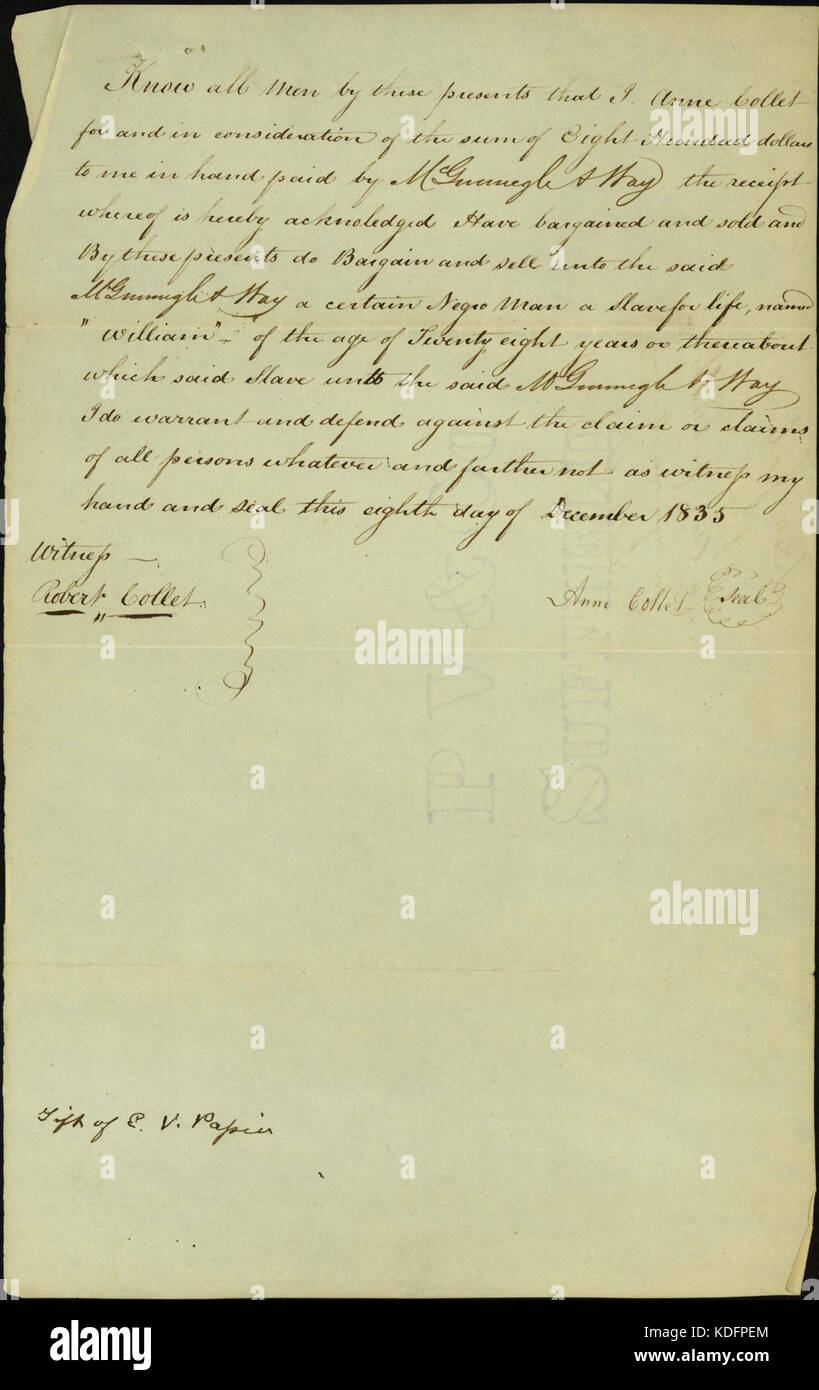 Know all Men by these presents that I. Anne Collet
for and in consideration of the sum of Eight Hundred dollars
to me in hand paid by McGunnegle & Way the receipt
whereof is hereby acknoledged Have bargained and sold and
By these presents do Bargain and sell unto the said
McGunnegle & Way a certain Negro Man a Slave for life, named
"William" – of the age of Twenty eight years or thereabout
which said Slave unto the said McGunnegle & Way
I do warrant and defend against the claim or claims
of all persons whatever and further not as witness my
hand and seal this eighth day of December 1835
Witness —
Robert Collet.
Anne Collet Seal
P V &
Gift of E. V. Papin
alamy
alamy stock photo
KDFPEM
www.alamy.com